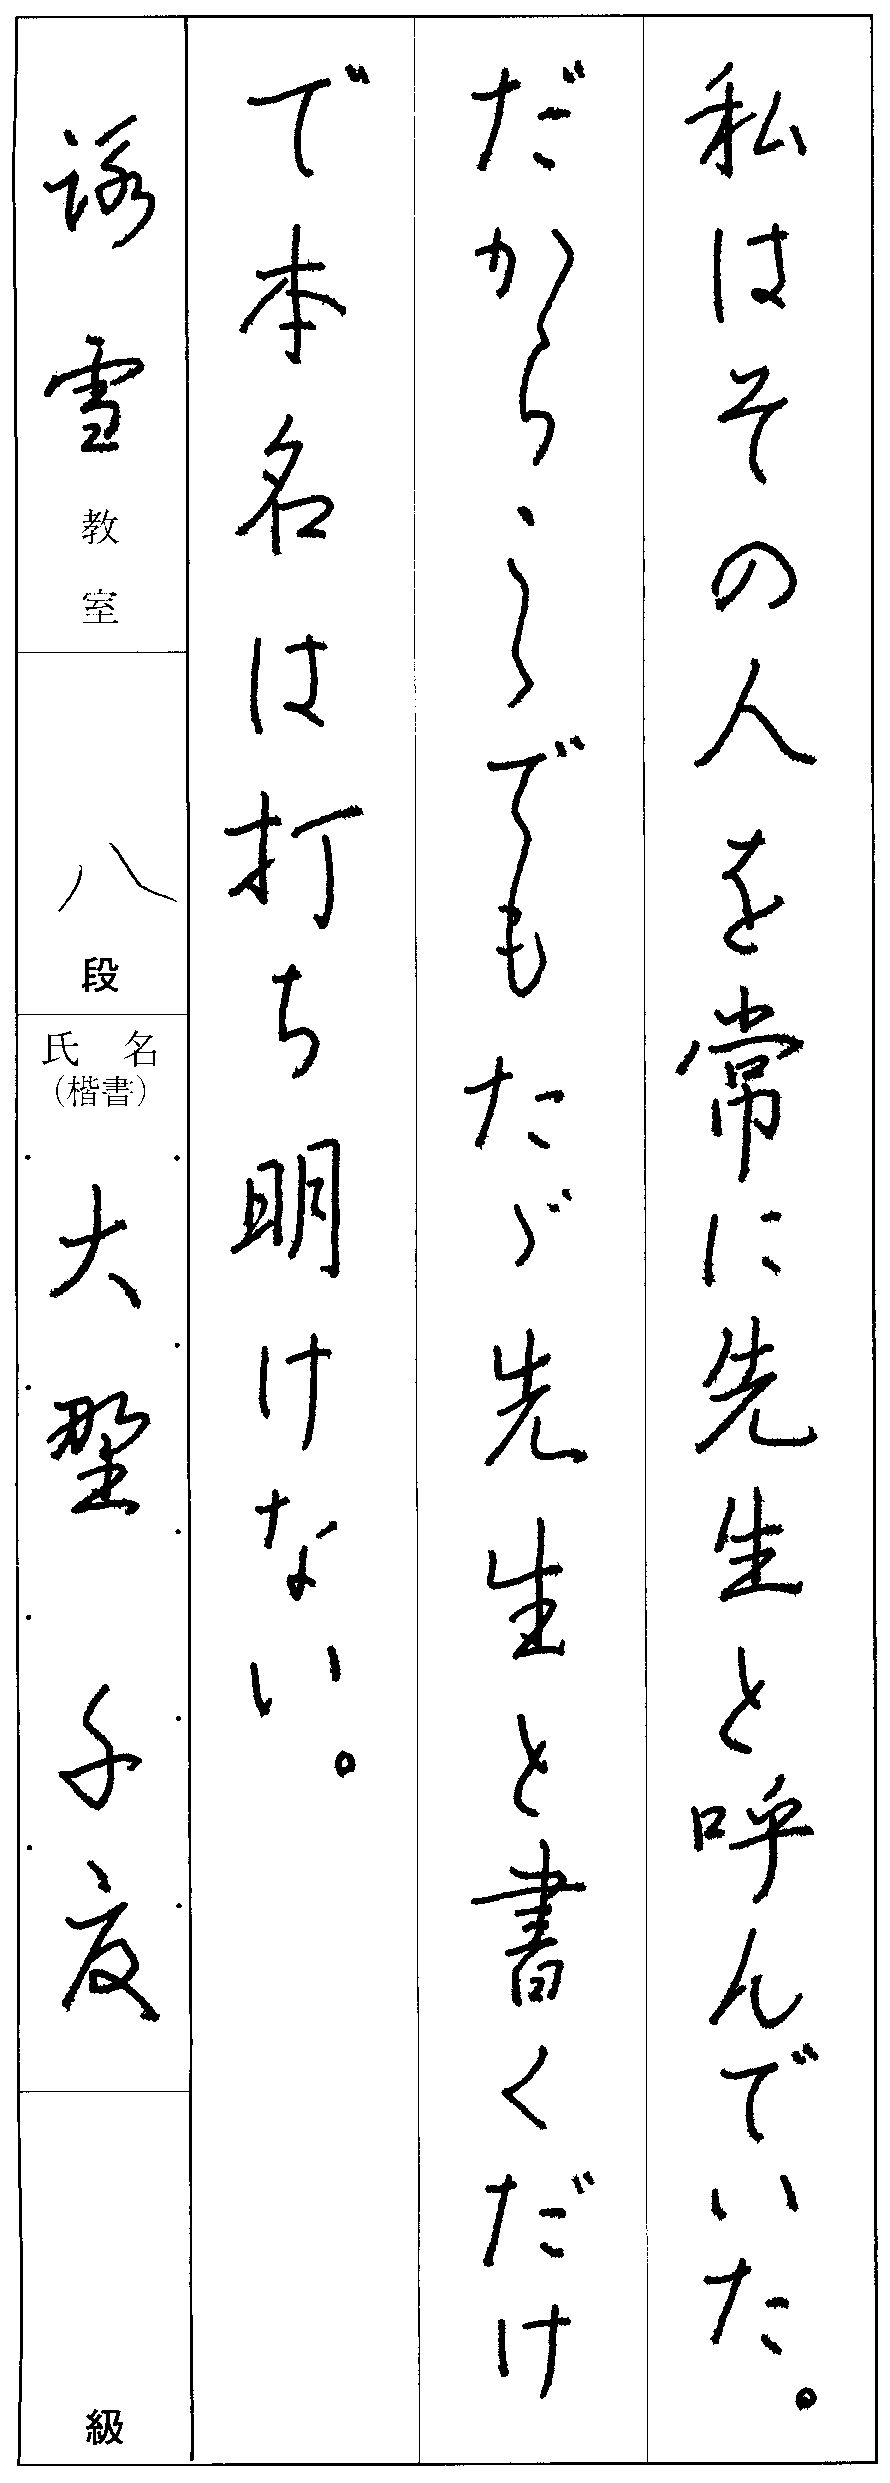 私はその人を常に先生と呼んでいた。
だからこゝでもたゞ先生と書くだけ
で本名は打ち明けない。
雪教室
八段
氏名
(楷書)
大 千
級